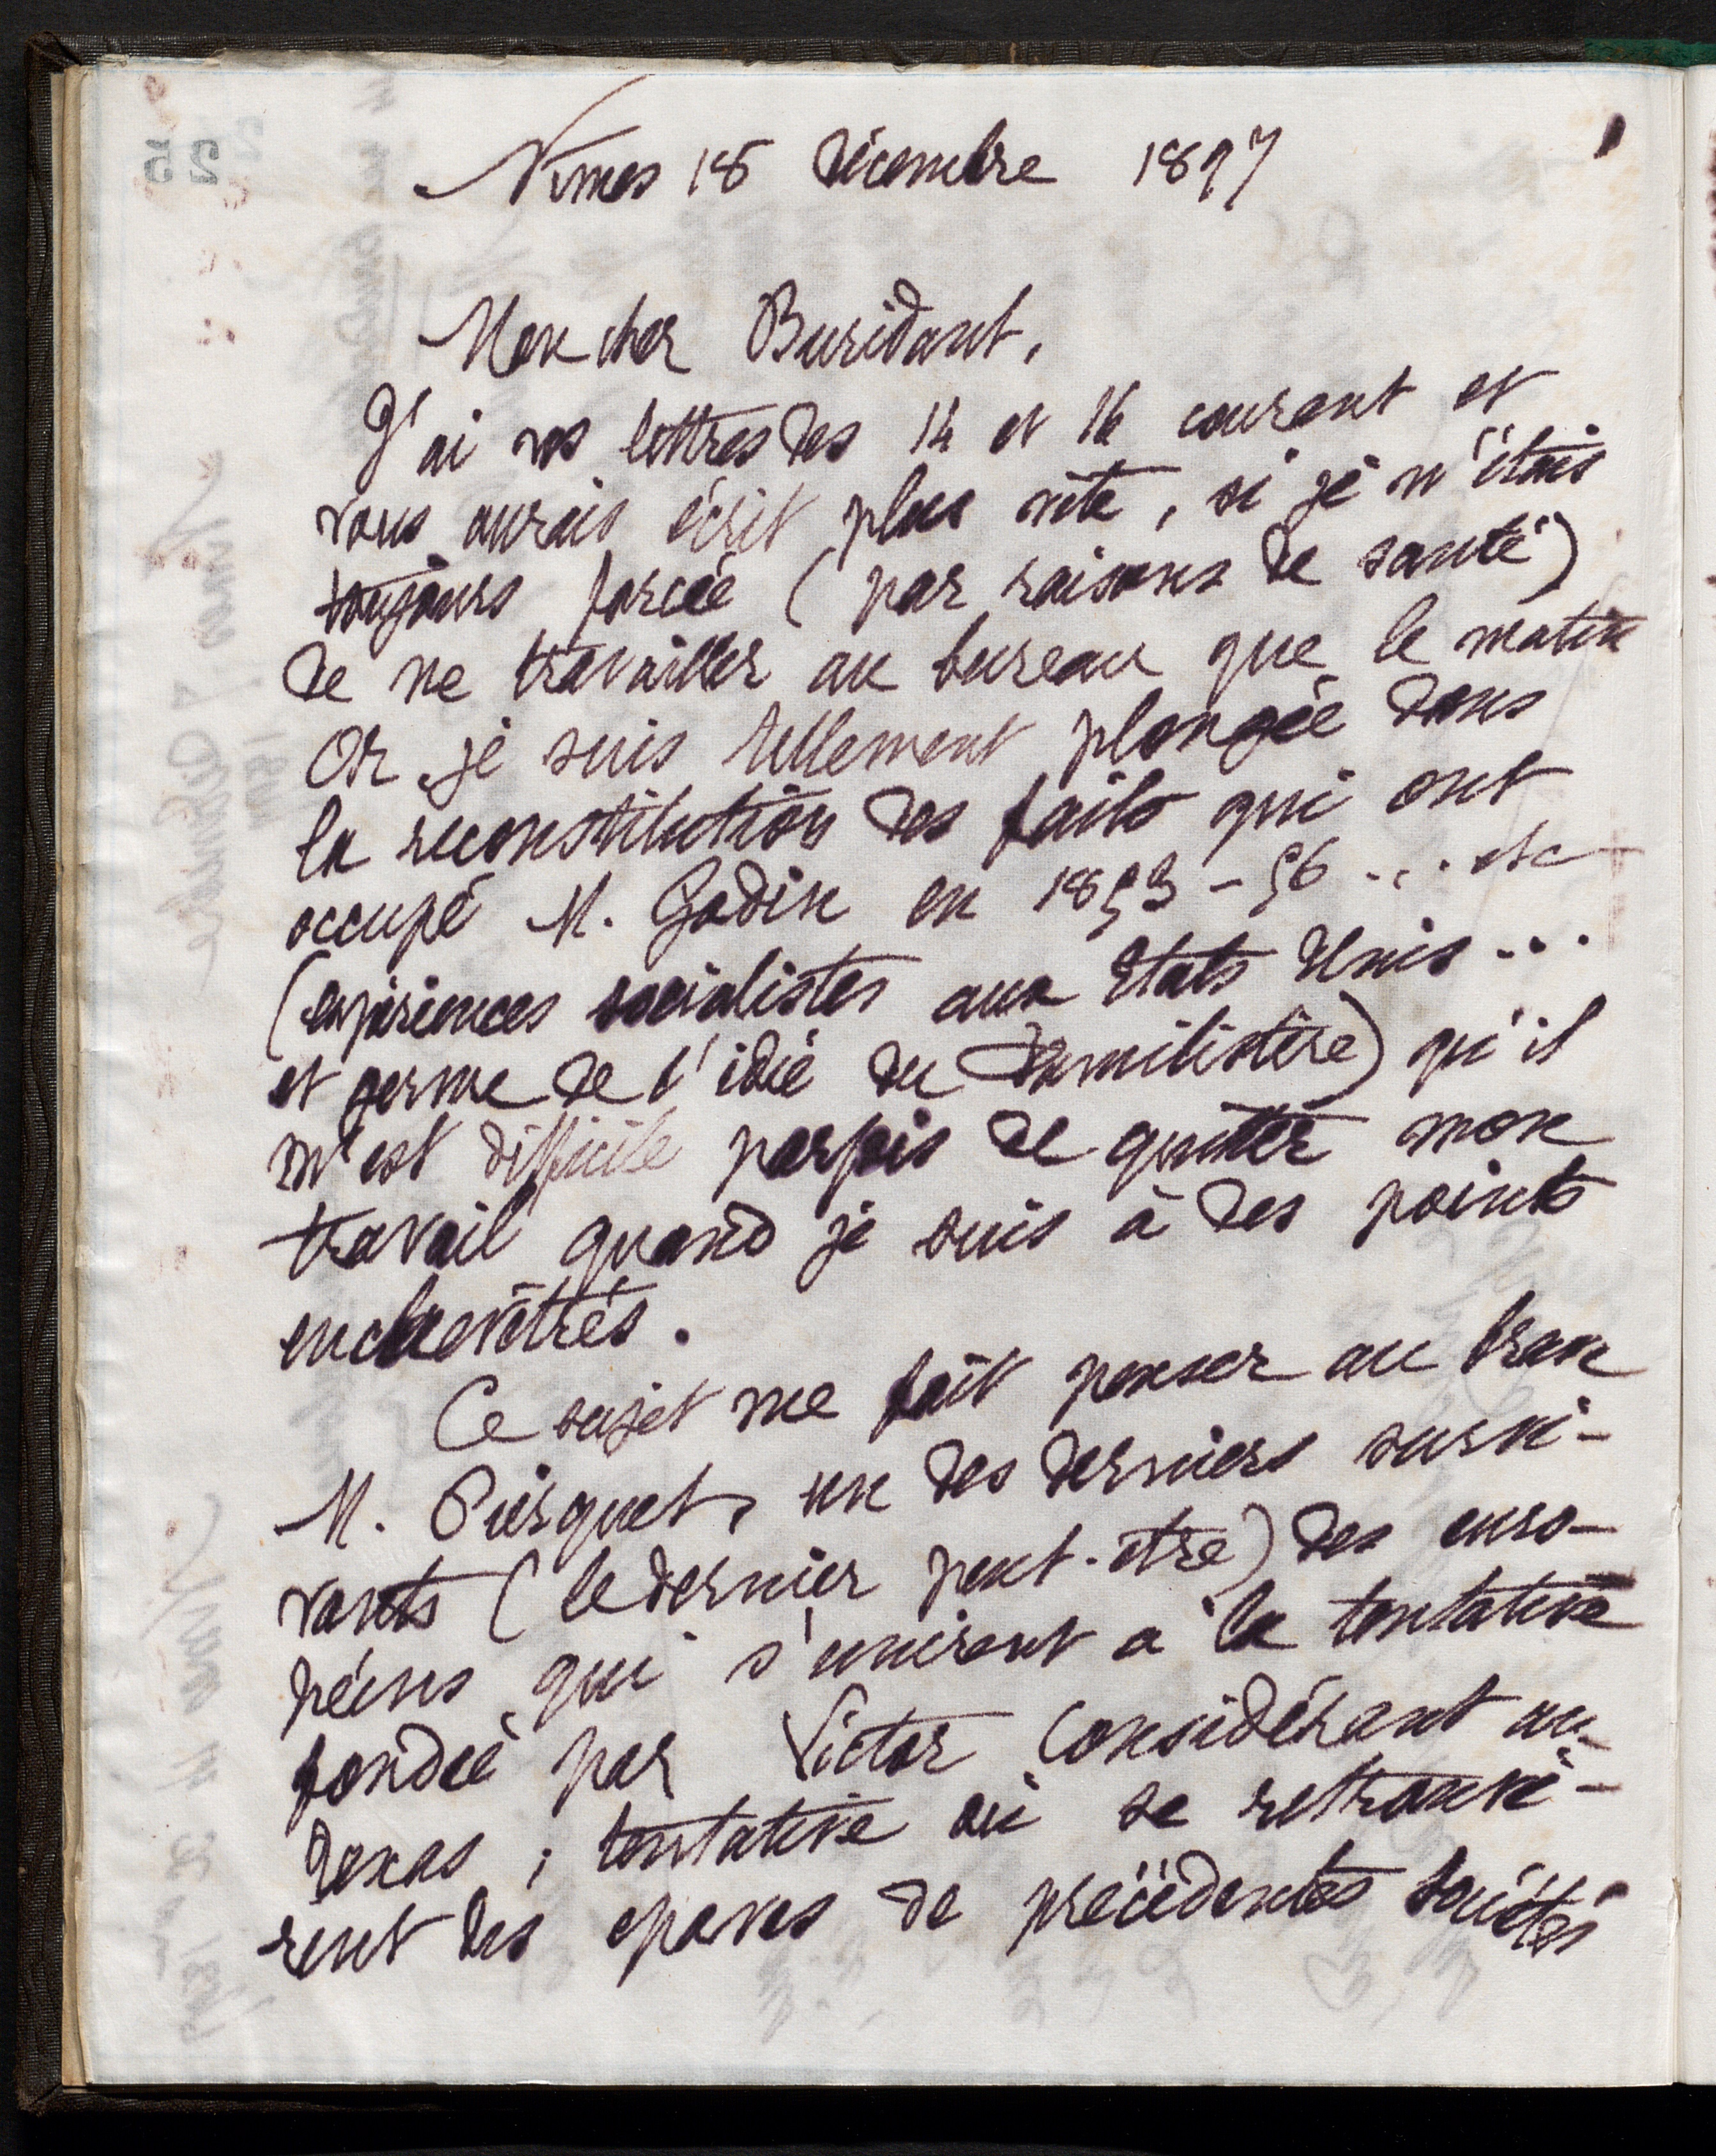 Nîmes 18 décembre 1897
Mon cher Buridant,
J'ai vos lettres des 14 et 16 courant et
vous aurais écrit plus vite, si je n'étais
toujours forcée (par raisons de santé)
de ne travailler au bureau que le matin
Or je suis tellement plongée dans
la reconstitution des faits qui ont
occupé M. Godin en 1853-56... etc
(expériences socialistes aux Etats Unis...
et germe de l'idée du Familistère) qu'il
m'est difficile parfois de quitter mon
travail quand je suis à des points
enchevêtrés.
Ce sujet me fait penser au bon
M. Quirquet, un des derniers survi-
vants (le dernier peut-être) des euro-
péens qui s'unirent à la tentative
fondée par Victor Considérant au
Texas ; tentative où se retrouvè-
rent des épaves de précédentes Sociétés